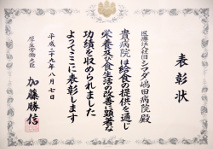 表彰状
医療法人社団シマダ 嶋田病院 殿
貴病院は給食の提供を通じ
栄養及び食生活の改善に顕著な
功績を収められました
よってここに表彰します
平成二十九年八月七日
厚生労働大臣
加藤勝信